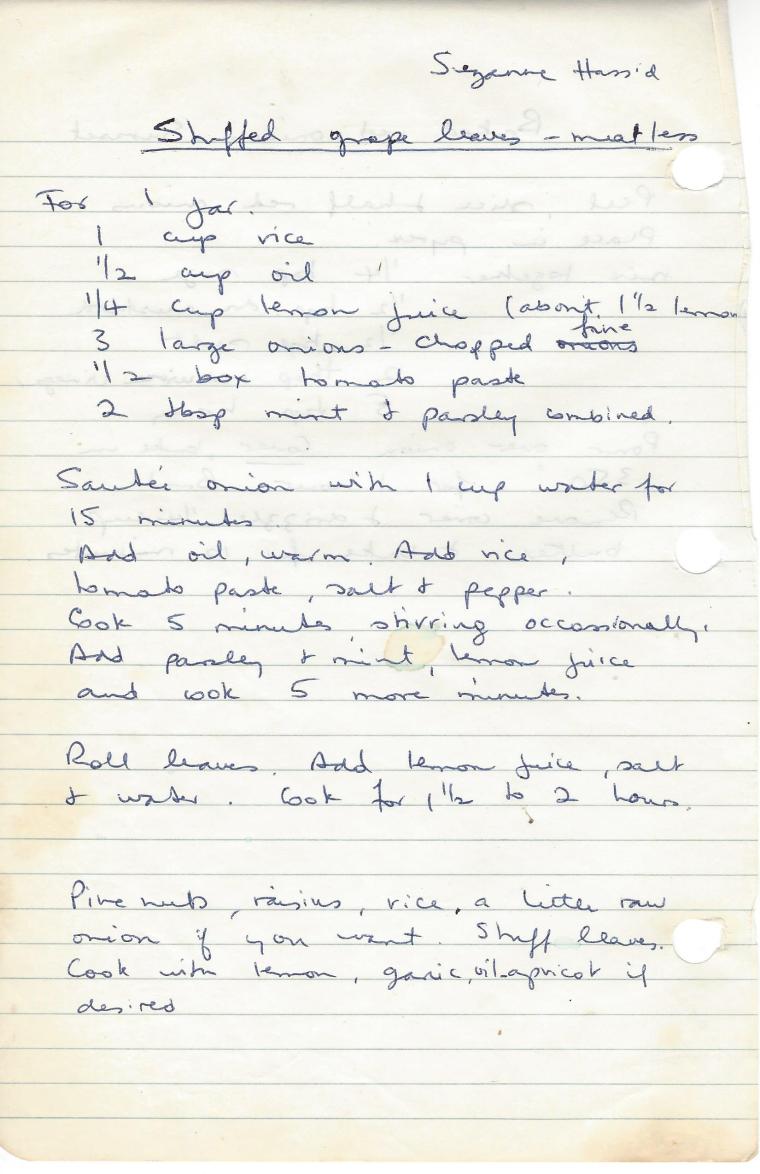 Suzanne Hassid
Stuffed grape leaves - meatless
For 1 jar.
1 cup rice
1/2 cup oil
1/4 cup lemon juice (about 1 1/2 lemon
3 large onions - chopped onions fine
1/2 box tomato paste
2 tbsp mint & parsley combined.
Sauteé onion with 1 cup water for
15 minutes.
Add oil, warm. Add rice,
tomato paste, salt & pepper.
Cook 5 minutes, stirring occassionally.
Add parsley & mint, lemon juice
and cook 5 more minutes.
Roll leaves. Add lemon juice, salt
& water. Cook for 1 1/2 to 2 hours.
Pine nuts, raisins, rice, a little raw
onion if you want. Stuff leaves.
Cook with lemon, garlic, oil-apricot if
desired